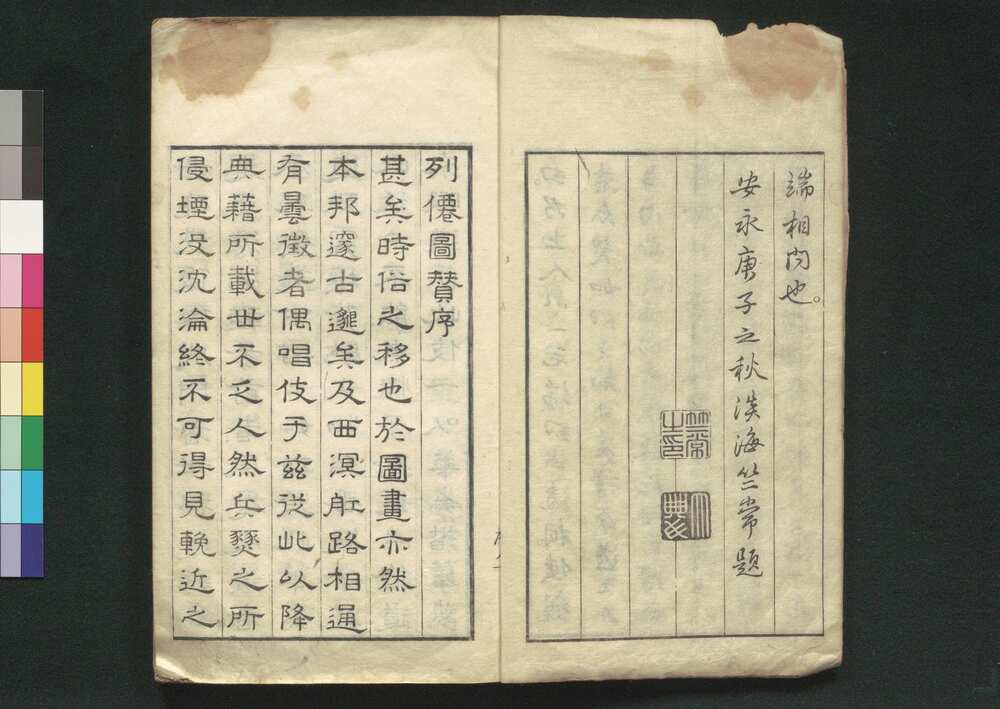 端相問也。
安永庚子之秋淡海竺常題
竺常之印
列僊圖贊序
甚矣時俗之移也於圖畫亦然
本邦邃古邈矣及西溟舡路相通
有曇徵者偶唱伎于茲從此以降
典藉所載世不乏人然兵燹之所
侵堙没沈淪終不可得見輓近之